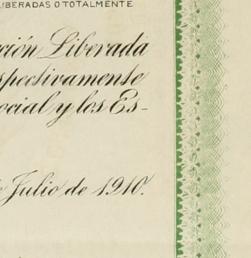 LIBERADAS O TOTALMENTE
ción Liberada
spectivamente
ocial y los Es-
Julio de 1910.